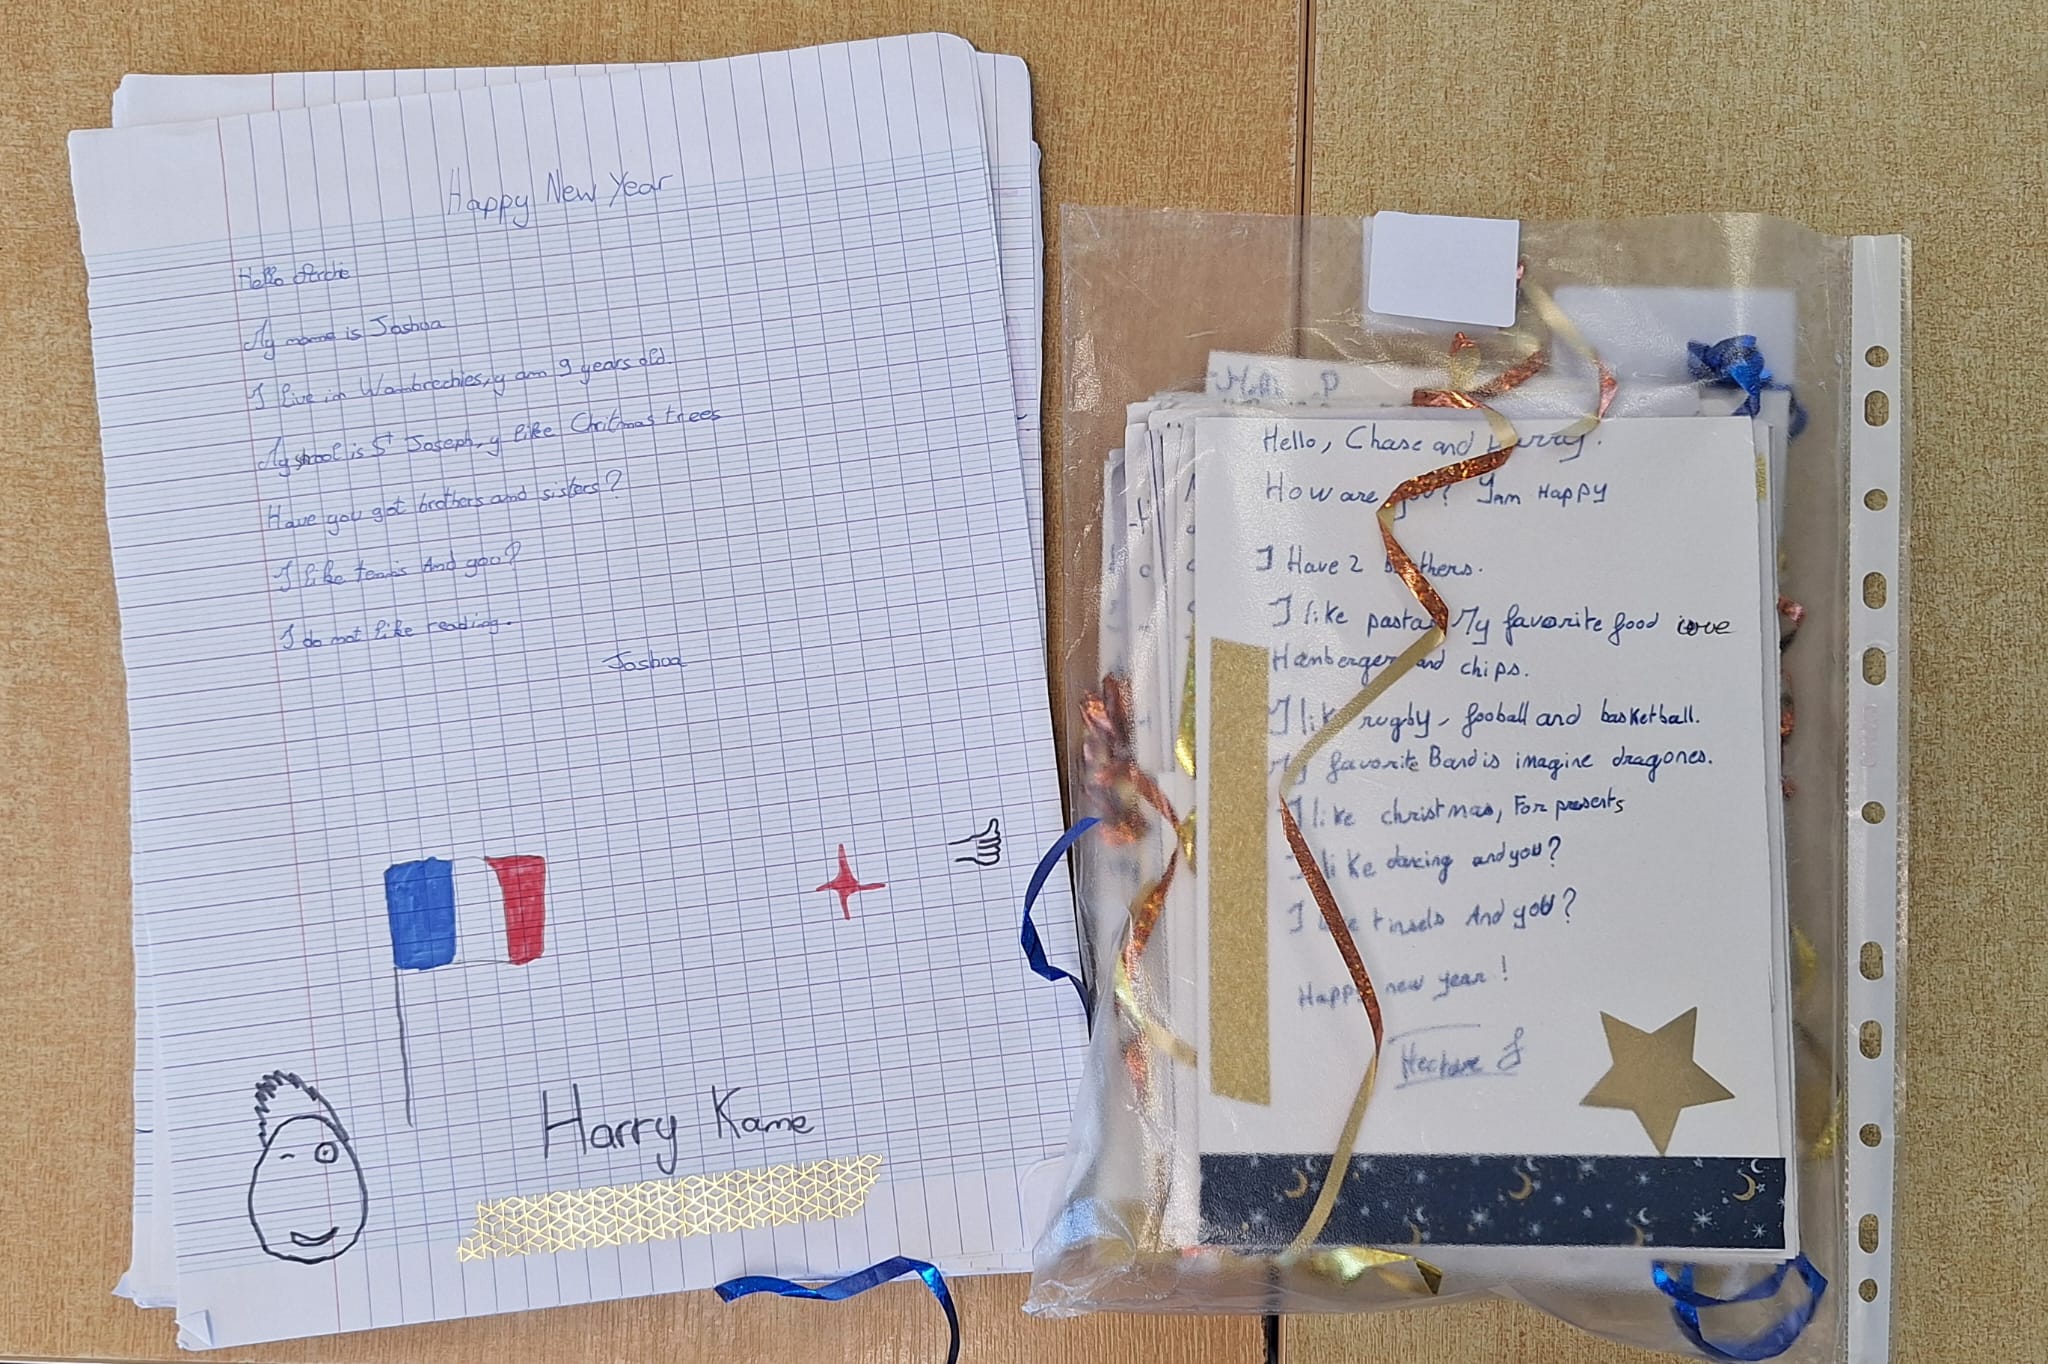 Happy New Year
Hello Archie
My name is Joshua
I live in Wambrechies, y am 9 years old.
My shool is St Joseph, y like Chritmas trees
Have you got brothers and sisters?
I like tennis And you?
I do not like reading.
Joshua
Harry Kame
Hello, Chase and Harry.
How are you? Yam Happy
I Have 2 brothers.
I like pasta My favorite food
Hamberger and chips.
I like rugby, fooball and basketball.
My favorite Band is imagine dragones.
I like christmas, For presents
I like dancing and you?
I like tinsels And you?
Happy new year!